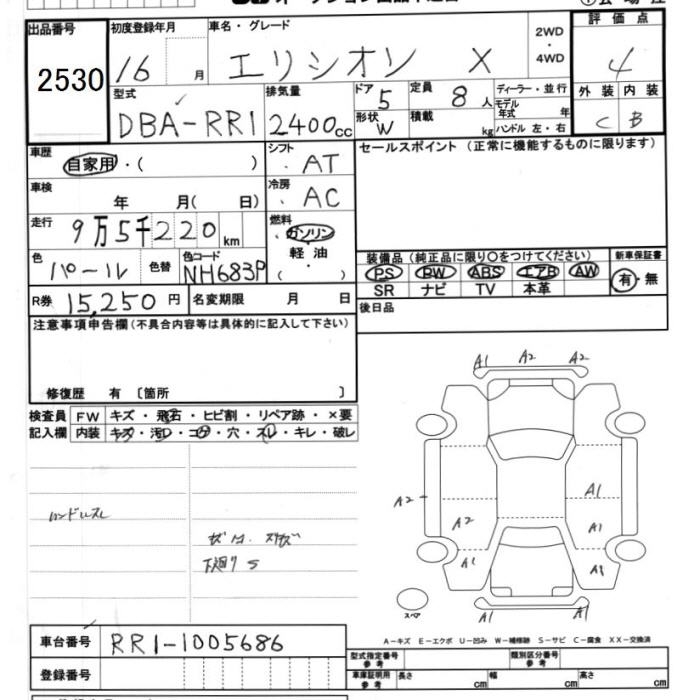 出品番号 2530
初度登録年月 16 月
車名・グレード エリシオン X
2WD・4WD
評価点 4
型式 DBA-RR1
排気量 2400cc
ドア 5 定員 8人
ディーラー・並行
形状 W 積載 kg
モデル年式 年
ハンドル 左・右
外装 内装
C B
車歴 自家用・( )
シフト AT
セールスポイント（正常に機能するものに限ります）
車検 年 月( 日)
冷房 AC
走行 9万5千220km
燃料 ・ガソリン
軽油
・( )
色 パール 色替
色コード NH683P
装備品（純正品に限り○をつけてください） 新車保証書
PS PW ABS エアB AW
有・無
SR ナビ TV 本革
R券 15,250円 名変期限 月 日
後日品
注意事項申告欄（不具合内容等は具体的に記入して下さい）
修復歴 有〔箇所 〕
検査員 FW キズ・飛石・ヒビ割・リペア跡・×要
記入欄 内装 キズ・汚レ・コゲ・穴・スレ・キレ・破レ
A1 A2 A2
A2 A1
A2 A1
A1 A1
ハンドルスレ
下廻りS
スペア
A1 A1
A－キズ E－エクボ U－凹み W－補修跡 S－サビ C－腐食 XX－交換済
車台番号 RR1-1005686
型式指定番号 参考 類別区分番号 参考
登録番号
車庫証明用 参考 長さ cm 幅 cm 高さ cm